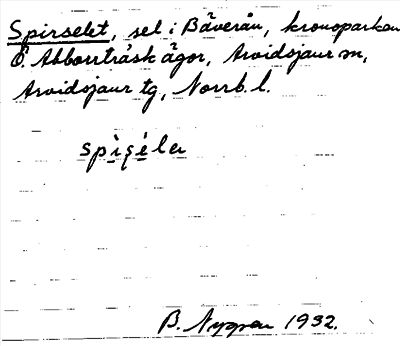 Spirselet, sel i Bäverån, kronoparken
Ö. Abborrträsk ägor, Arvidsjaur sn,
Arvidsjaur tg, Norrb. l.
B. Nygren 1932.